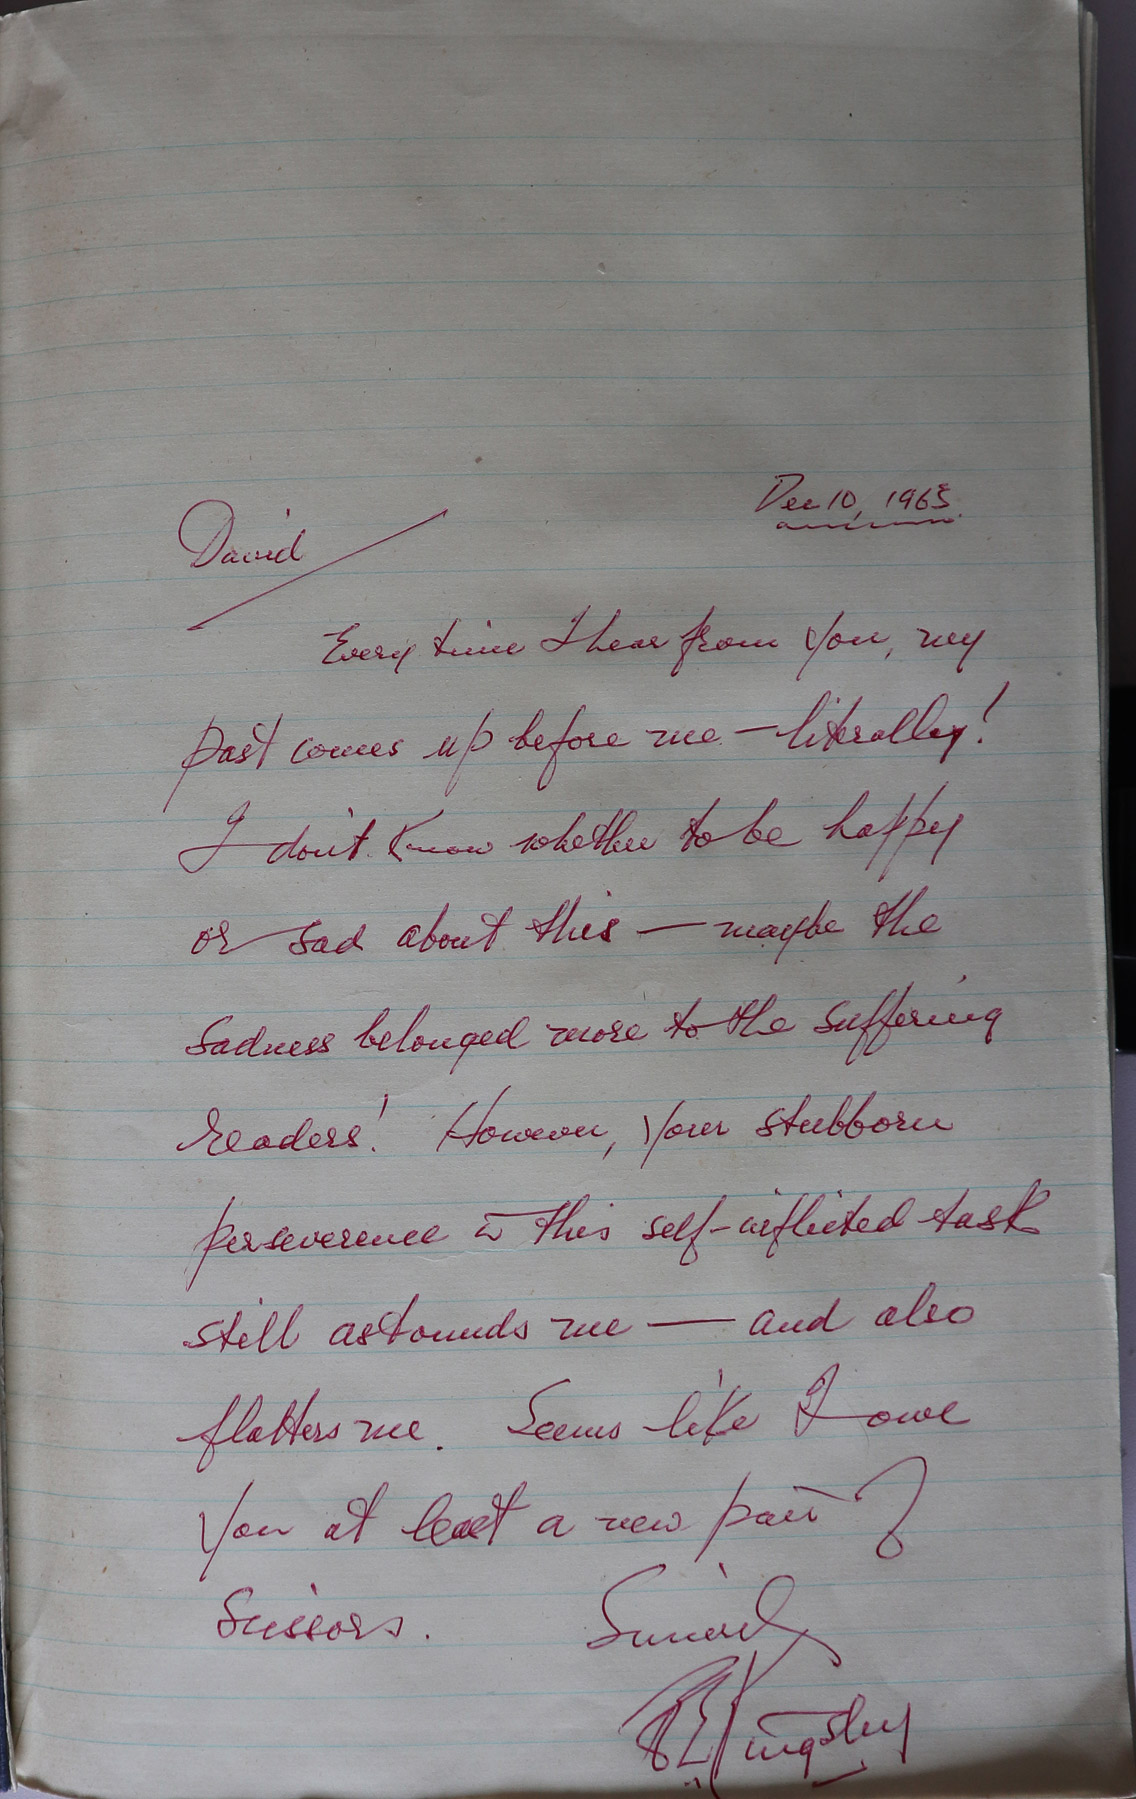 Dec 10, 1965.
David
Every time I hear from you, my
past comes up before me — literally!
I don't know whether to be happy
or sad about this — maybe the
sadness belonged more to the suffering
readers! However, your stubborn
perseverence in this self-inflicted task
still astounds me — and also
flatters me. Seems like I owe
you at least a new pair of
scissors. Sincerely
Kingsley